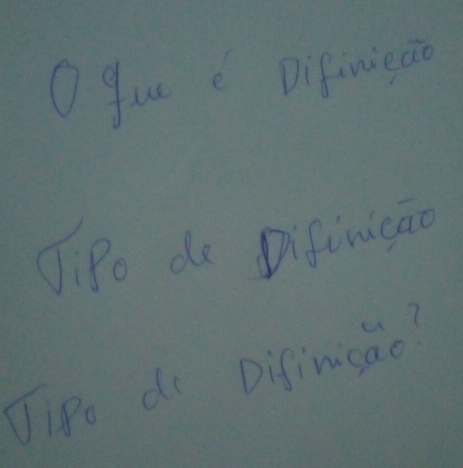 O que é Difinição
Tipo de Difinição
Tipo de Difinição?